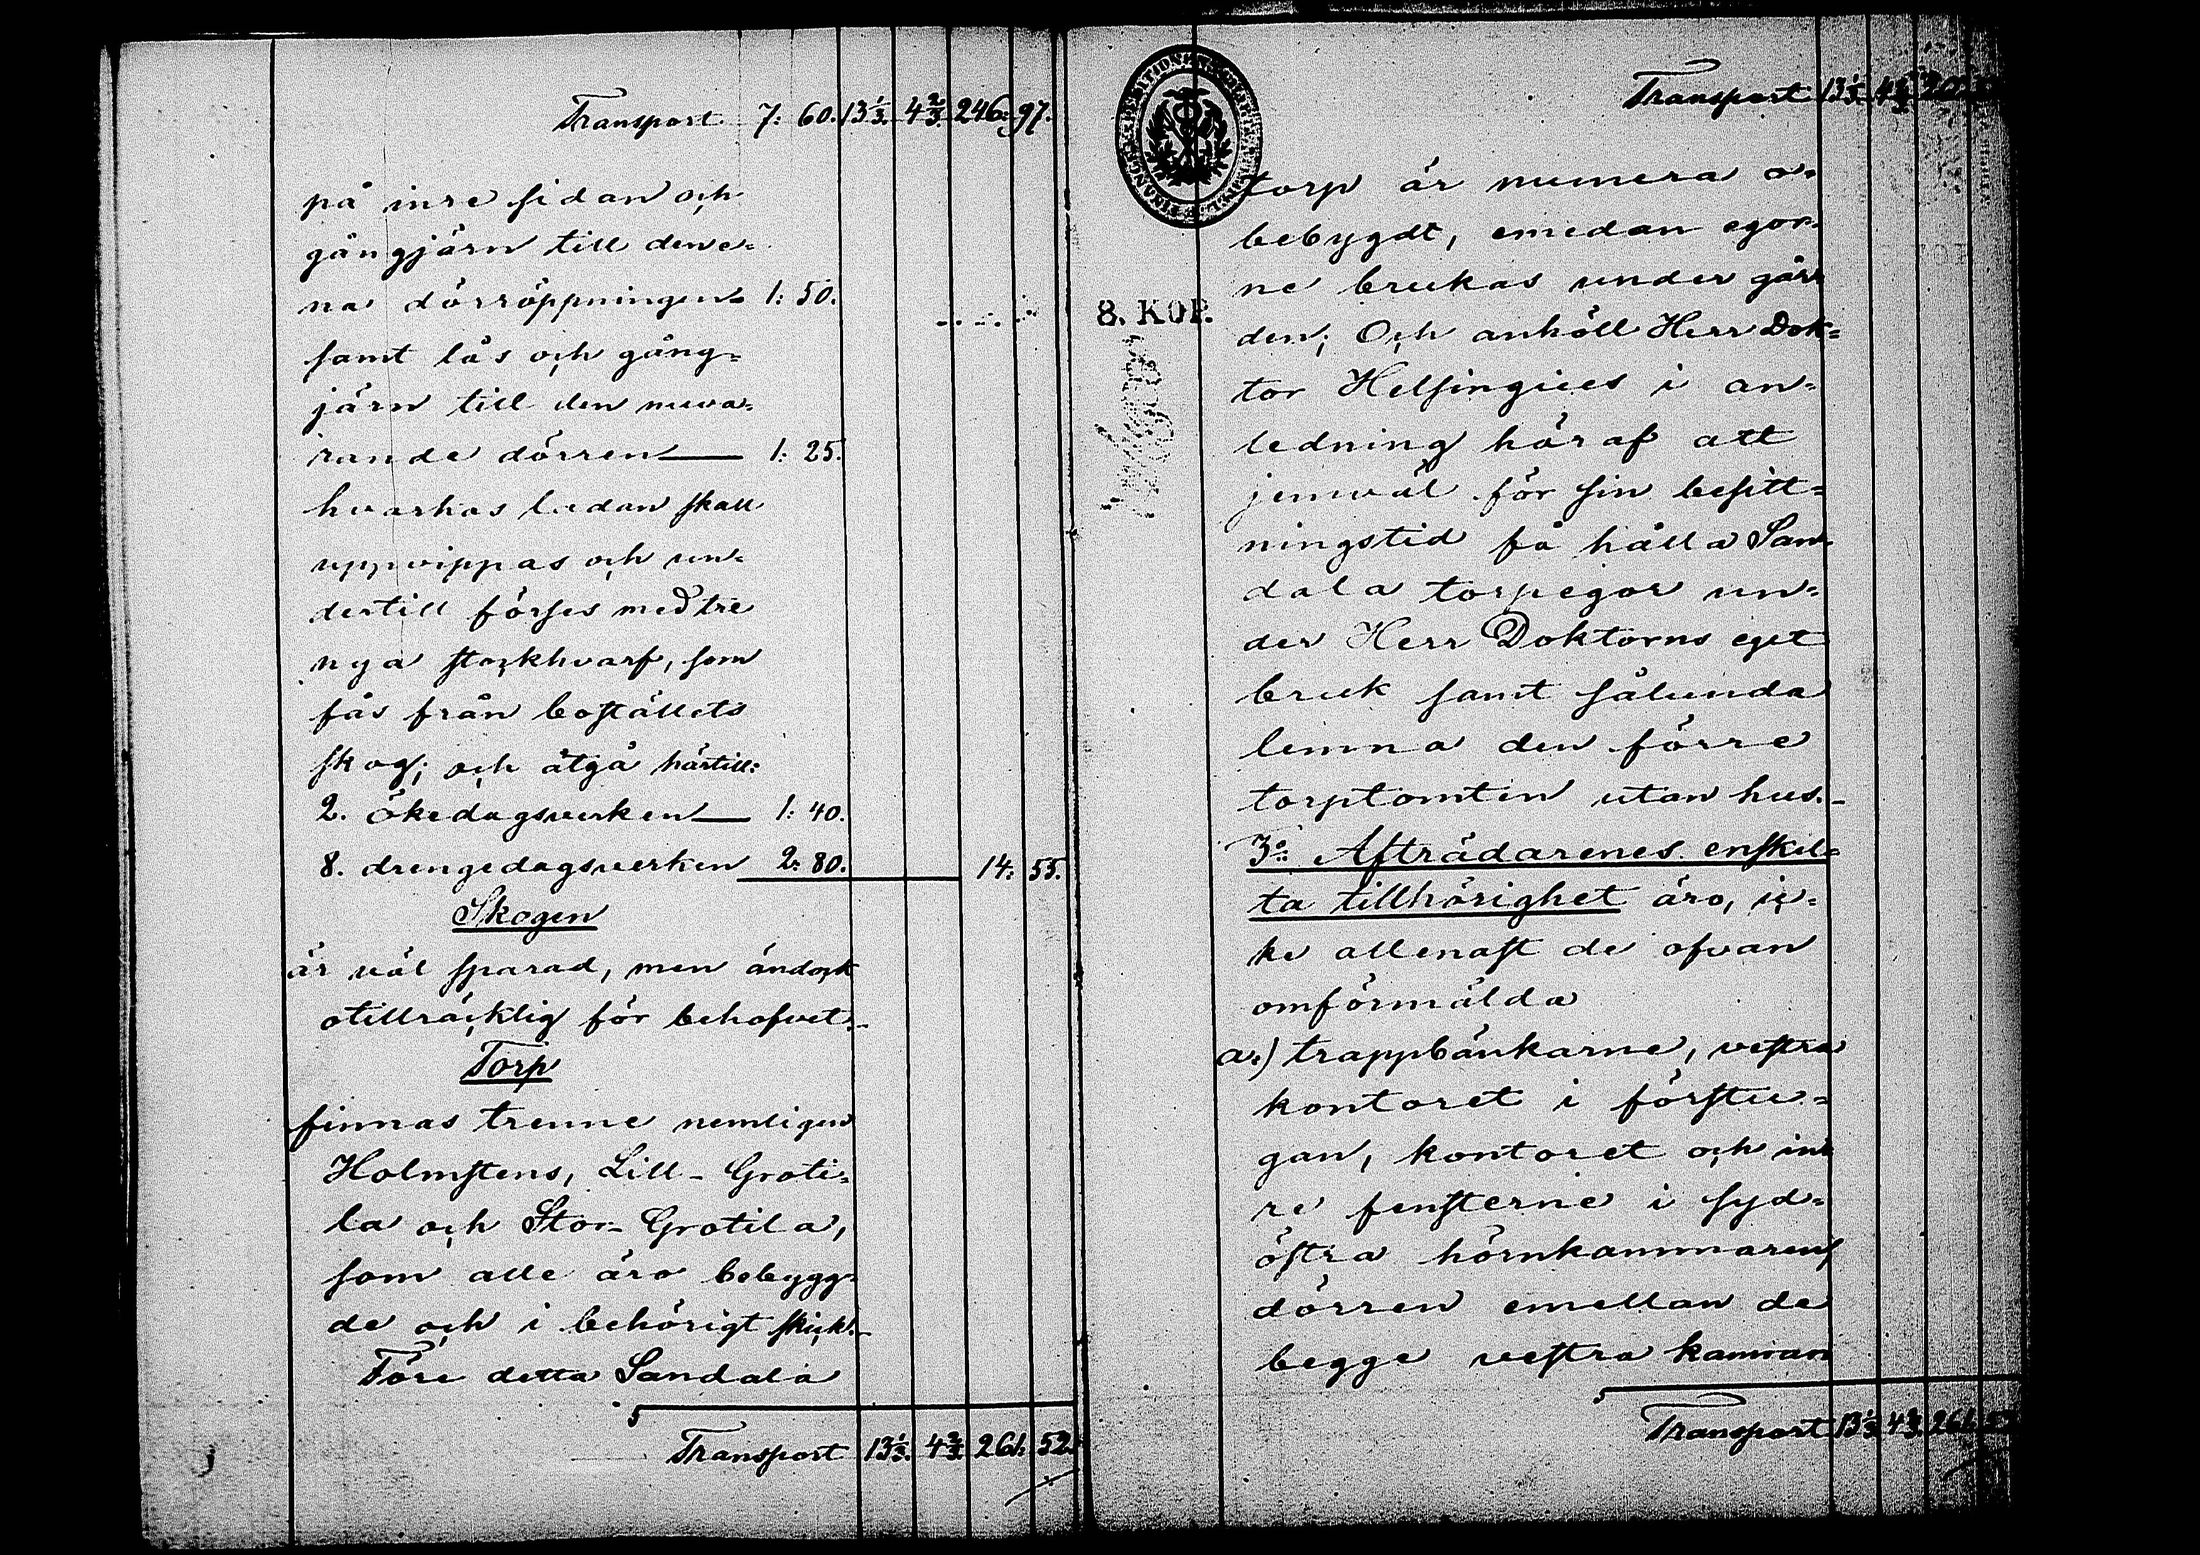 Transport 7: 60. 13⅓. 4⅔. 246: 97.
på inre sidan och
gångjärn till dene=
na dörröppningen 1: 50.
samt lås och gång=
järn till den nuva=
rande dörren — 1: 25.
hvarhos ladan skall
uppvippas och un=
dertill förses med tre
nya stockhvarf, som
fås från boställets
skog; och åtgå härtill:
2. ökedagsverken — 1: 40.
8. drengedagsverken 2: 80. 14: 55.
Skogen
är väl sparad, men ändock
otillräcklig för behofvet.
Torp
finnas trenne nemligen
Holmstens, Lill-Groti=
la och Stor-Grotila,
som alle äro bebygg=
de och i behörigt skick.
Före detta Sandala
Transport 13⅓. 4⅔. 261: 52.
8. KOP.
Transport 13⅓. 4⅔.
torp är numera o=
bebygdt, emedan egor=
ne brukas under går
den; Och anhöll Herr Dok=
tor Helsingius i an=
ledning häraf att
jemväl för sin besitt=
ningstid få hålla San=
dala torpegor un=
der Herr Doktorns eget
bruk samt sålunda
lemna den förre
torptomten utan hus.
3:o Afträdarenes enskil=
ta tillhörighet äro, ic=
ke allenast de ofvan
omförmälda
a.) trappbänkarne, vestra
kontoret i förstu=
gan, kontoret och in
re fensterne i syd=
östra hörnkammaren,
dörren emellan de
begge vestra kamrar
Transport 13⅓. 4⅔. 261: 52